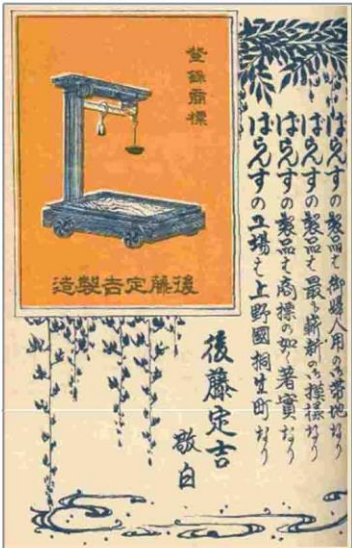 ばらんすの製品は御婦人用の帯地なり
ばらんすの製品は最も斬新の模様なり
ばらんすの製品は商標の如く著實なり
ばらんすの工場は上野國桐生町なり
後藤定吉
敬白
登録商標
後藤定吉製造